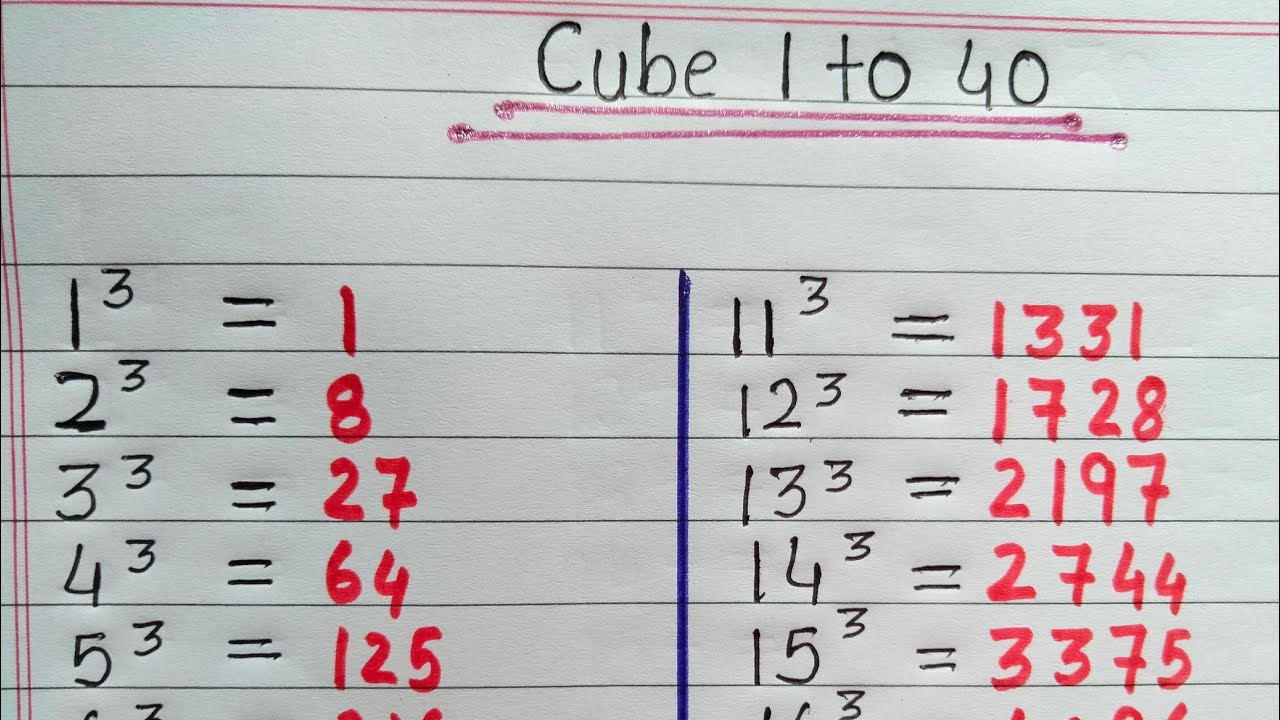 Cube 1 to 40
1³ = 1
2³ = 8
3³ = 27
4³ = 64
5³ = 125
11³ = 1331
12³ = 1728
13³ = 2197
14³ = 2744
15³ = 3375